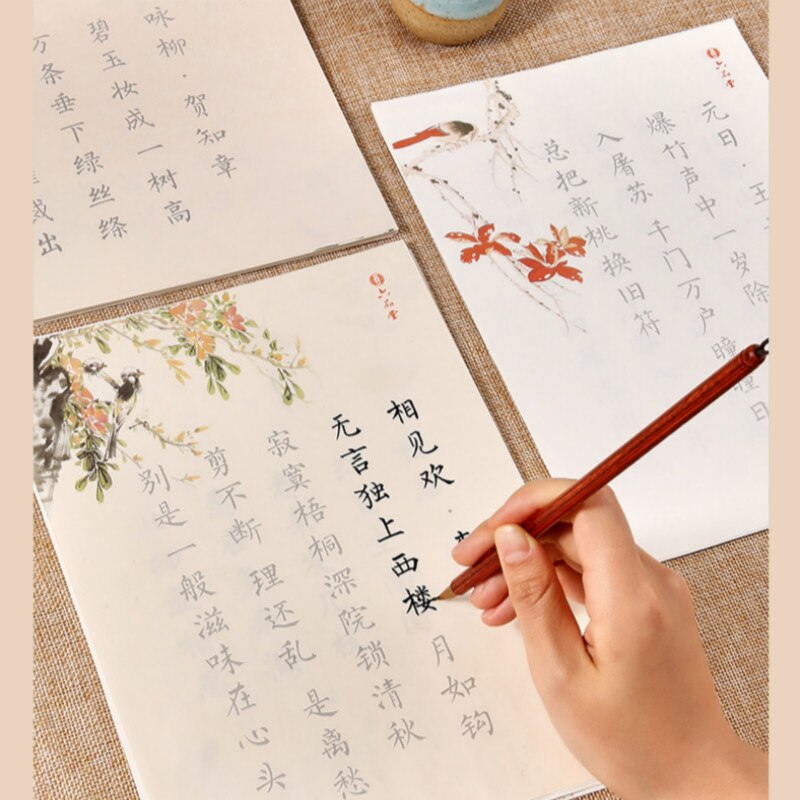 咏柳·贺知章
碧玉妆成一树高
万条垂下绿丝绦
出
六品堂
元日·王
爆竹声中一岁除
入屠苏 千门万户曈曈日
总把新桃换旧符
六品堂
相见欢·
无言独上西楼 月如钩
寂寞梧桐深院锁清秋
剪不断 理还乱 是离愁
别是一般滋味在心头